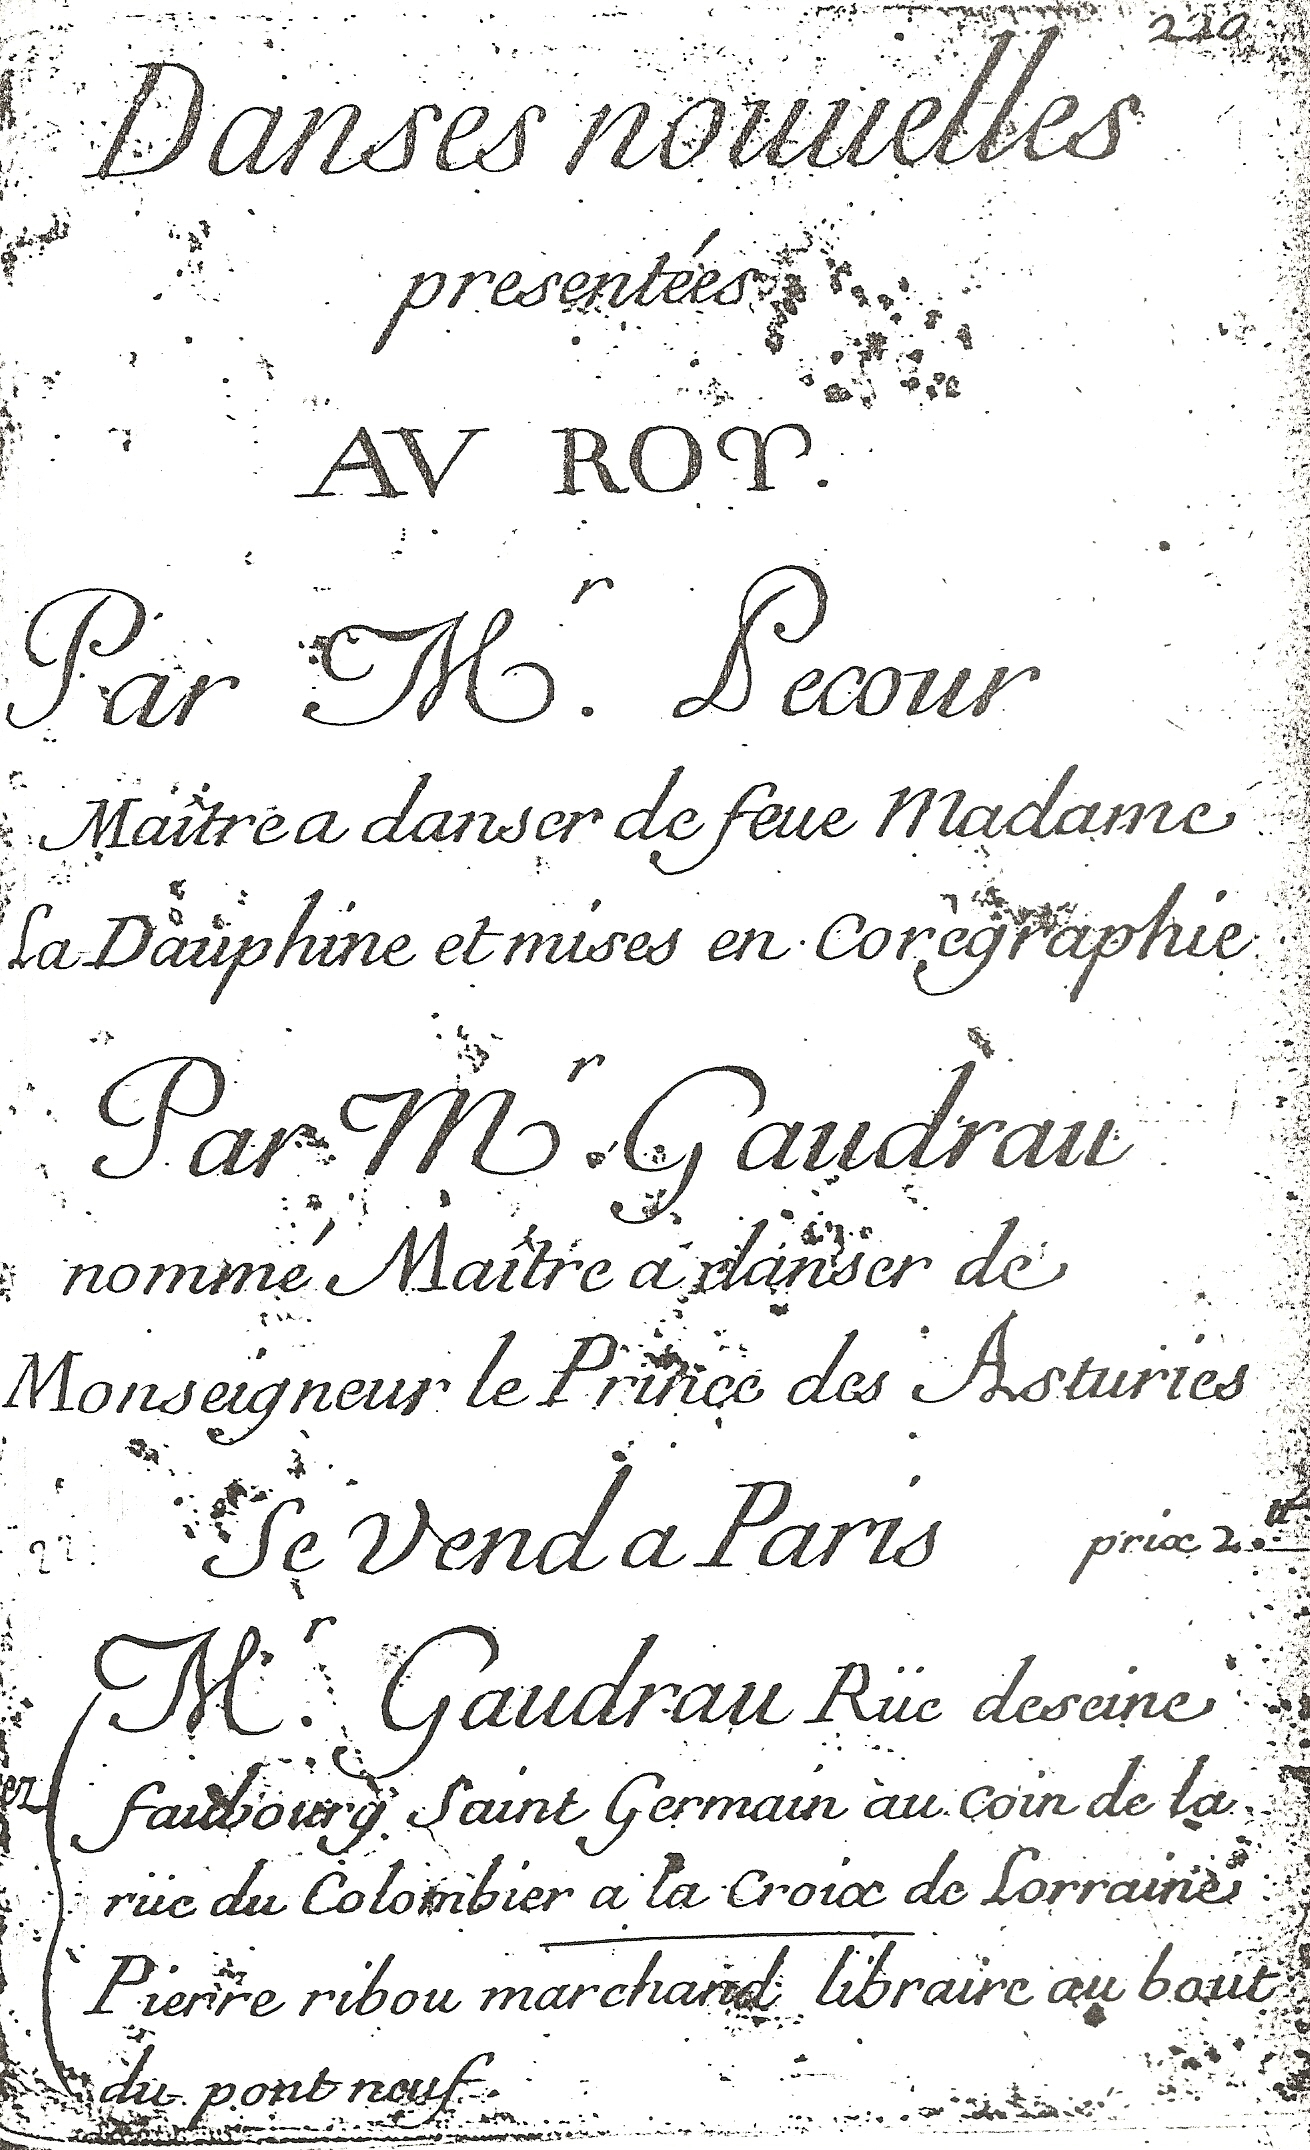 220
Danses nouuelles
presentées
AV ROY.
Par M.r Pecour
Maître a danser de feue Madame
La Dauphine et mises en Coregraphie
Par M.r Gaudrau
nommé Maître a danser de
Monseigneur le Prince des Asturies
Se Vend a Paris prix 2.tt
M.r Gaudrau Rüe deseine
faubourg Saint Germain au coin de la
rüe du Colombier a la Croix de Lorraine
Pierre ribou marchand libraire au bout
du pont neuf.